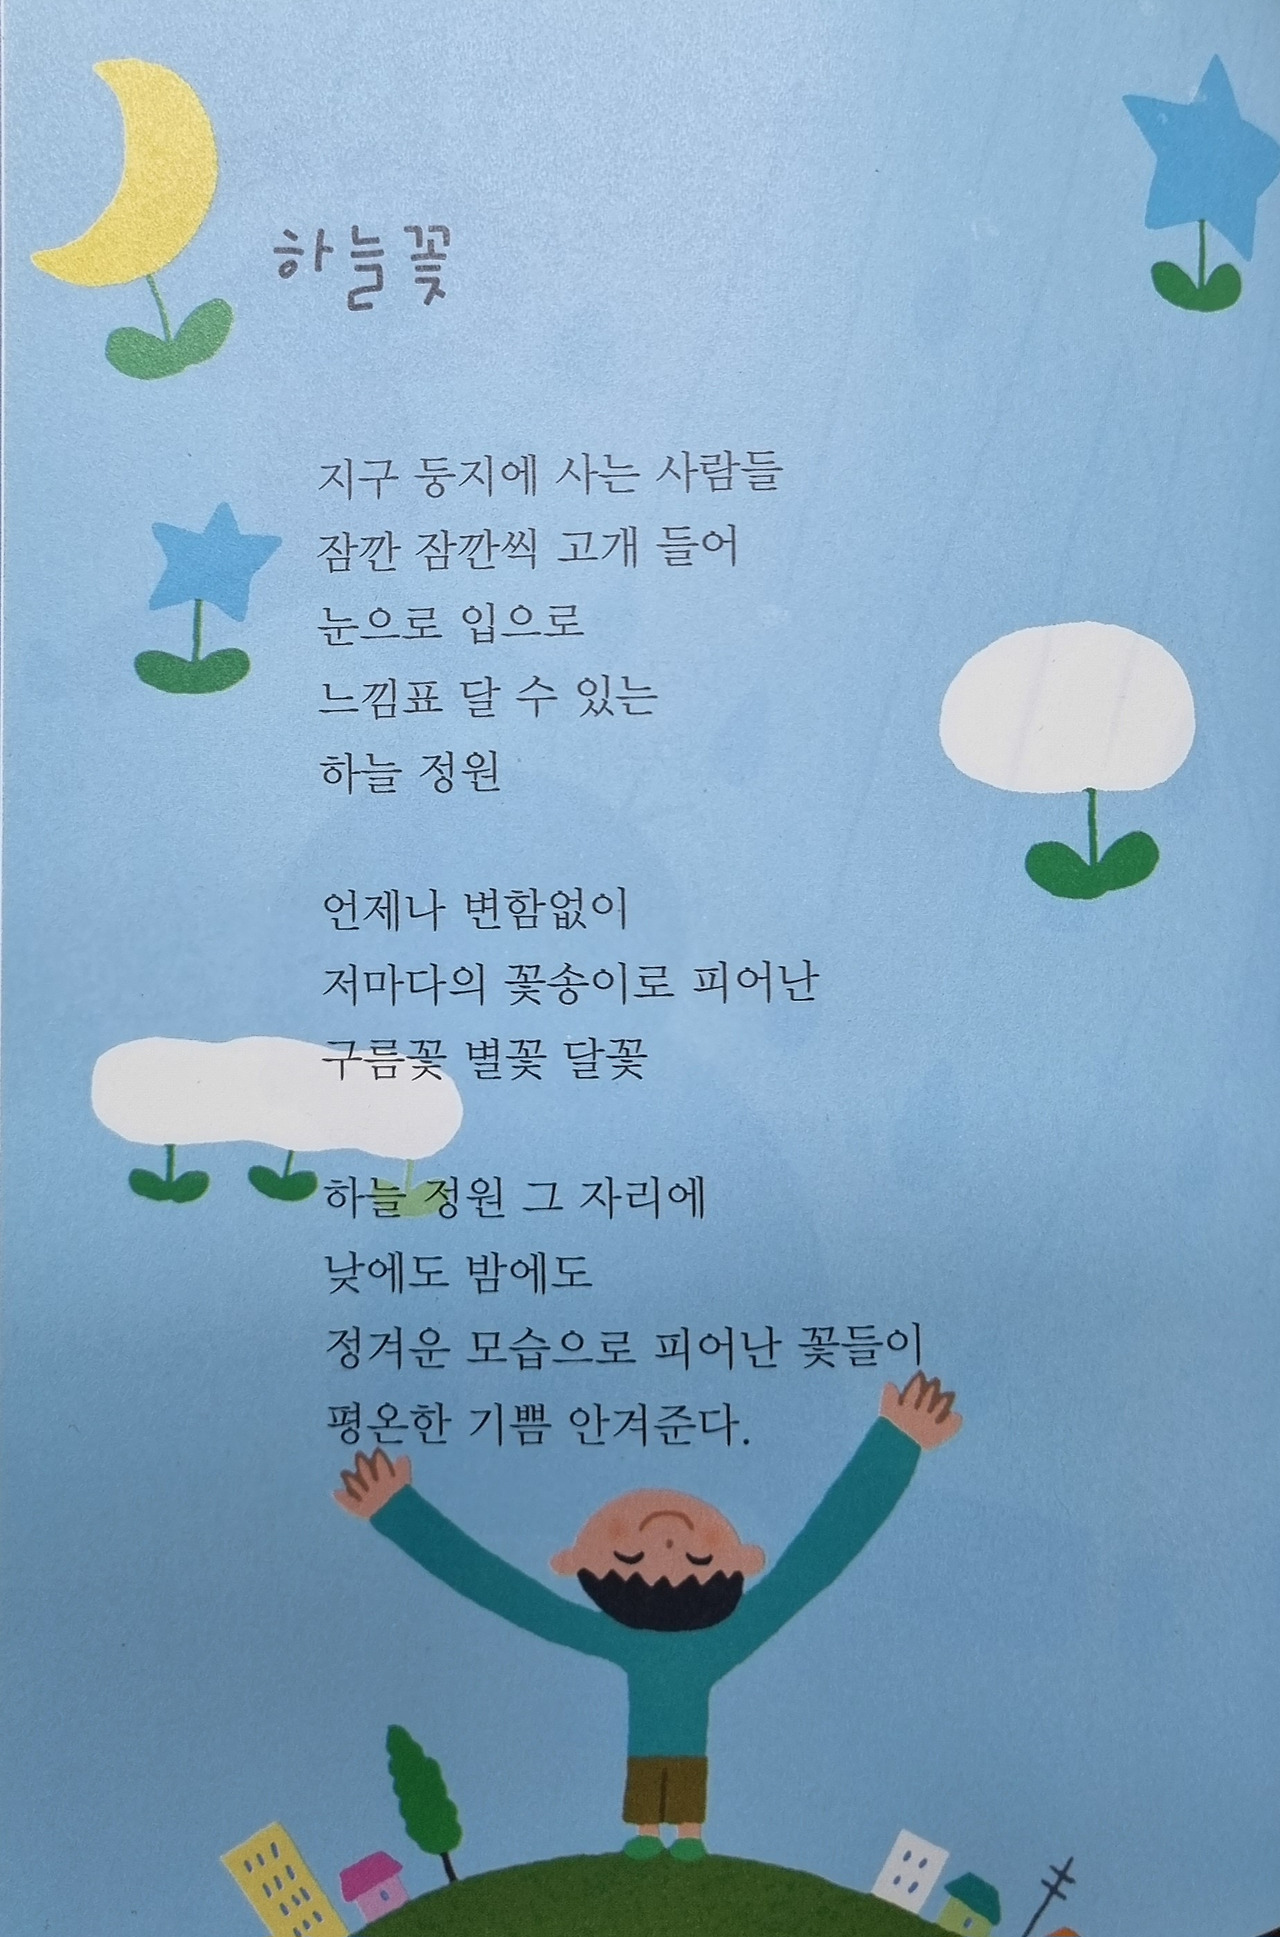 하늘꽃
지구 둥지에 사는 사람들
잠깐 잠깐씩 고개 들어
눈으로 입으로
느낌표 달 수 있는
하늘 정원
언제나 변함없이
저마다의 꽃송이로 피어난
구름꽃 별꽃 달꽃
하늘 정원 그 자리에
낮에도 밤에도
정겨운 모습으로 피어난 꽃들이
평온한 기쁨 안겨준다.